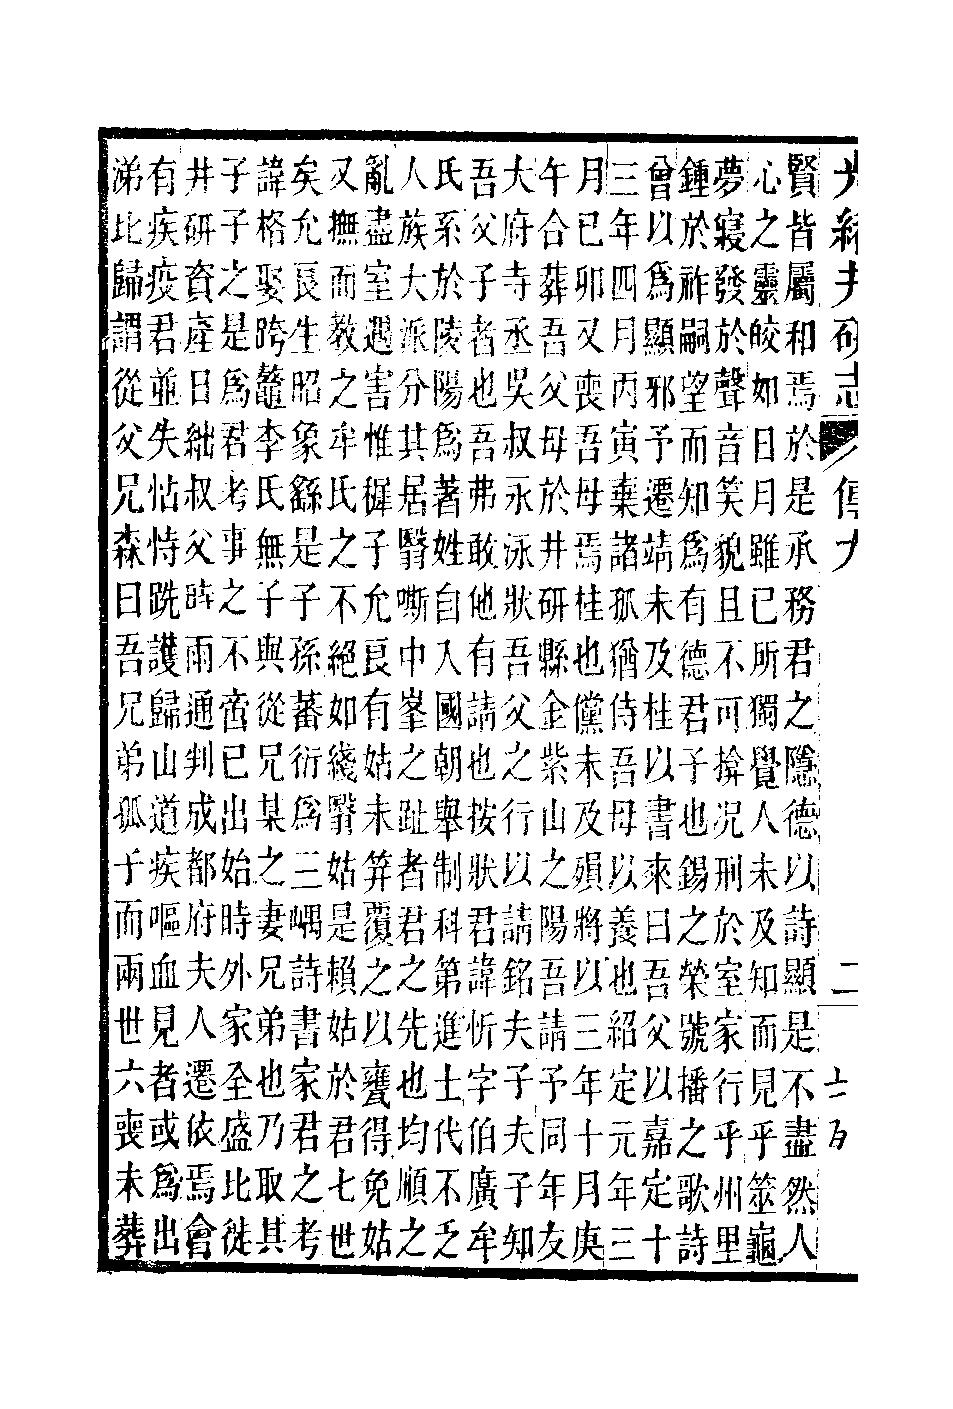 光緒井研志 傳六 二
賢皆屬和焉於是承務君之隱德以詩顯是不盡然人
心之靈皎如日月雖已所獨覺人未及知而見乎筮龜
夢寢發於聲音笑貌且不可揜况刑於室家行乎州里
鍾於祚嗣望而知爲有德君子也錫之榮號播之歌詩
曾以爲顯邪予遷靖未及桂以書來曰吾父以嘉定十
三年四月丙寅棄諸孤猶侍吾母以養也紹定元年三
月已卯又喪吾母焉桂也儻未及殞將以三年十月庚
午合葬吾父母於井研縣金紫山之陽吾請予同年友
大府寺丞吳叔永泳狀吾父之行以請銘夫子夫子知
吾父子者也吾弗敢他有請也按狀君諱忻字伯廣牟
氏系於陵陽爲著姓自入國朝舉制科第進士代不乏
人族大派分其居繄嘶中峯之趾者君之先也均順之
亂盡室遇害惟穉子允良有姑未筓覆之以甕得免姑
又撫而教之牟氏之不絕如綫繄姑是賴姑於君七世
矣允良生昭象繇是子孫蕃衍爲三嵎詩書家君之考
諱格娶跨鼇李氏無子與從兄某之妻兄弟也乃取其
子子之是爲君考事之不啻已出始時外家全盛比徙
井研資產日絀叔父時雨通判成都府夫人遷依焉會
有疾疫君並失怙恃跣護歸山道疾嘔血見者或爲出
涕比歸謂從父兄森曰吾兄弟孤孑而兩世六喪未葬